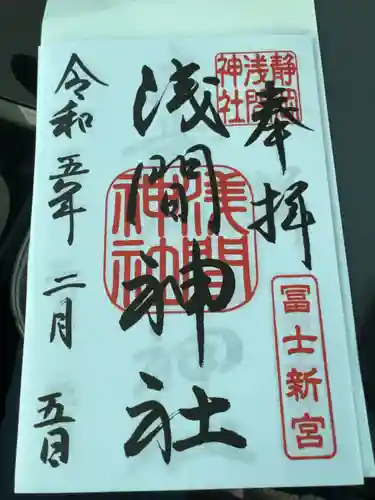 奉拝
静岡浅間神社
冨士新宮
浅間神社
浅間神社
令和五年二月五日